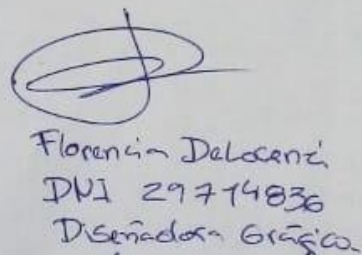 Florencia DeLocenzi
DNI 29714836
Diseñadora Gráfica